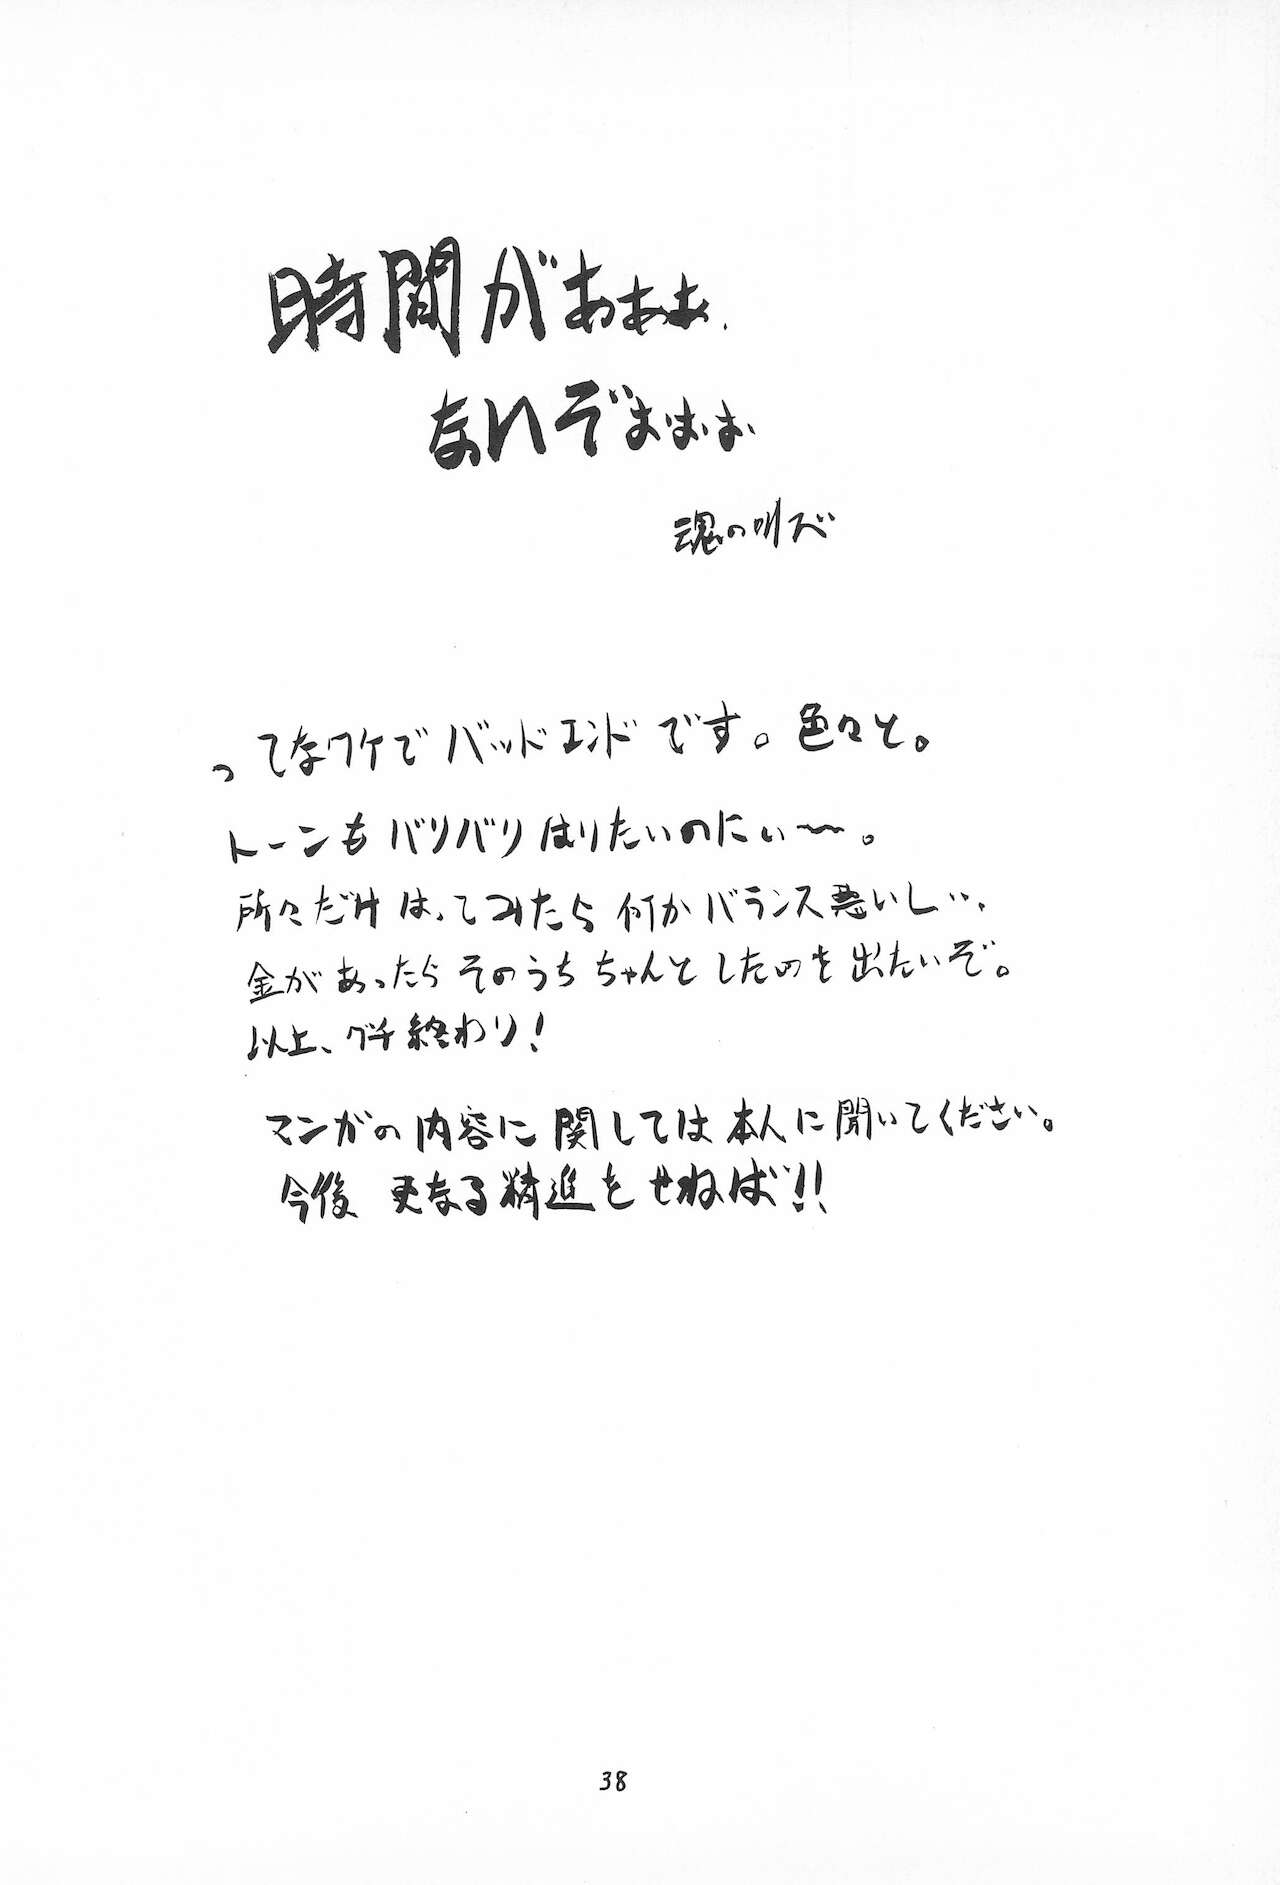 時間がぁぁぁ、
ないぞぉぉぉ
魂の叫ズ
ってなワケでバッドエンドです。色々と。
トーンもバリバリはりたいのにぃ〜〜。
所々だけはってみたら何かバランス悪いしぃ、
金があったらそのうちちゃんとしたのを出したいぞ。
以上、グチ終わり!
マンガの内容に関しては本人に聞いてください。
今後更なる精進をせねば!!
38